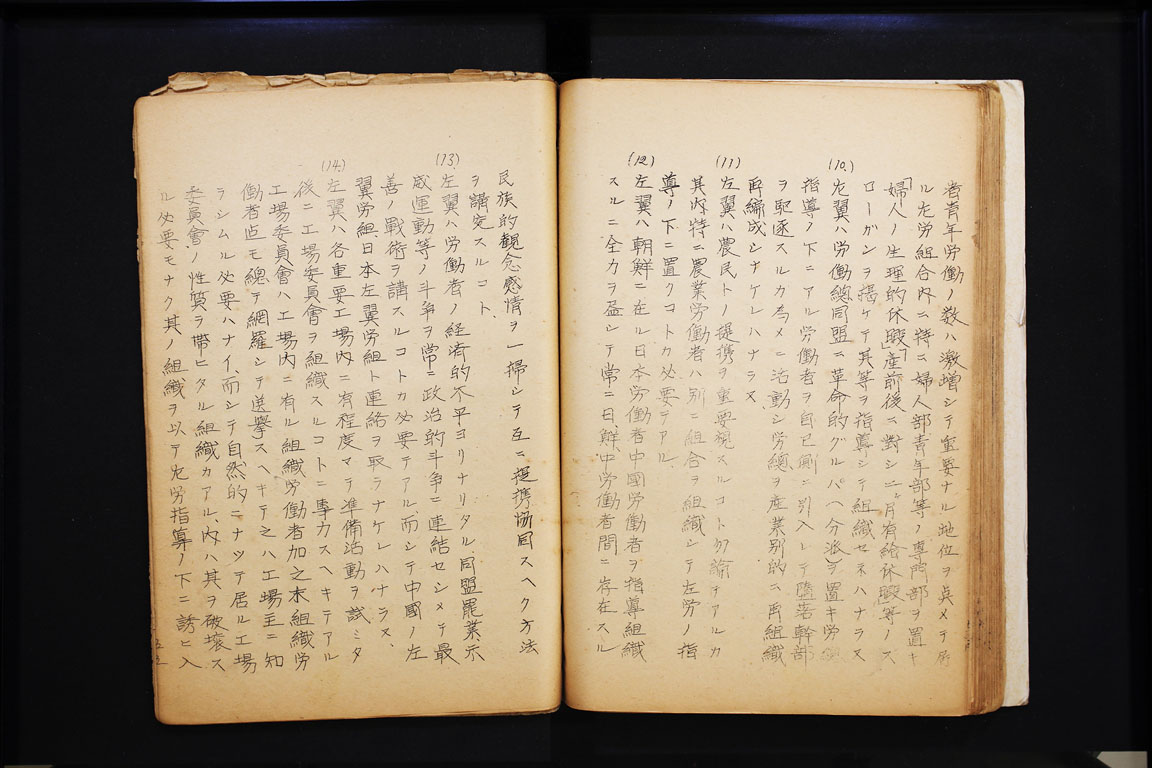 者青年労働ノ数ハ激増シテ重要ナル地位ヲ占メテ居
ル左労組合内ニ特ニ婦人部青年部等ノ専門部ヲ置キ
婦人ノ生理的休暇「産前後ニ對シ二ヶ月有給休暇」等ノス
ローガンヲ揚ケテ其等ヲ指導シテ組織セネハナラヌ
(10)
左翼ハ労働總同盟ニ革命的グルパヘ分派ヲ置キ労
指導ノ下ニアル労働者ヲ自己側ニ引入レテ墮落幹部
ヲ駆逐スルカ為メニ活動シ労總ヲ産業別的ニ再組織
再編成シナケレハナラヌ
(11)
左翼ハ農民トノ提携ヲ重要視スルコト勿論テアルカ
其内特ニ農業労働者ハ別ニ組合ヲ組織シテ左労ノ指
導ノ下ニ置クコトカ必要テアル
(12)
左翼ハ朝鮮ニ在ル日本労働者中國労働者ヲ指導組織
スルニ全力ヲ盡シテ常ニ日、鮮、中労働者間ニ存在スル
民族的観念感情ヲ一掃シテ互ニ提携協同スヘク方法
ヲ講究スルコト、
(13)
左翼ハ労働者ノ経済的不平ヨリナリタル同盟罷業示
威運動等ノ斗争ヲ常ニ政治的斗争ニ連結セシメテ最
善ノ戰術ヲ講スルコトカ必要テアル、而シテ中國ノ左
翼労組日本左翼労組ト連絡ヲ取ラナケレハナラヌ、
(14)
左翼ハ各重要工場内ニ有程度マテ準備活動ヲ試ミタ
後ニ工場委員會ヲ組織スルコトニ専力スヘキテアル
工場委員會ハ工場内ニ有ル組織労働者加之未組織労
働者迠モ總テ網羅シテ選擧スヘキテ之ハ工場主ニ知
ラシムル必要ハナイ而シテ自然的ニナツテ居ル工場
委員會ノ性質ヲ帯ヒタル組織カアル、内ハ其ヲ破壊ス
ル必要モナク其ノ組織ヲ以テ左労指導ノ下ニ誘ヒ入